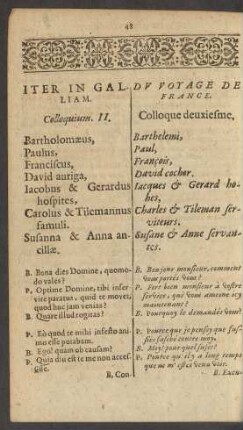 48
ITER IN GAL-
LIAM.
Colloquium. II.
Bartholomæus,
Paulus,
Franciscus,
David auriga,
Iacobus & Gerardus
hospites,
Carolus & Tilemannus
famuli.
Susanna & Anna an-
cillæ.
B. Bona dies Domine, quomo-
do vales?
P. Optime Domine, tibi inser-
vire paratus, quid te movet,
quod huc jam venias?
B. Quare illud rogitas?
P. Eò quod te mihi infesto ani-
mo esse putabam.
B. Ego? quam ob causam?
P. Quia diu est te me non acces-
sisse.
B. Con-
DV VOYAGE DE
FRANCE.
Colloque deuxiesme,
Barthelemi,
Paul,
François,
David cocher.
Iacques & Gerard ho-
stes,
Charles & Tileman ser-
viteurs.
Susane & Anne servan-
tes.
B. Bonjour monsieur, comment
vous portés vous?
P. Fort bien monsieur à vostre
service, que vous ameine icy
maintenant?
B. Pourquoy le demandés vous?
P. Pource que je pensoy que
fasché contre moy.
B. Moy? pour quel sujet?
P. Pource qu'il y a long temps
que ne m' venu voir.
B.